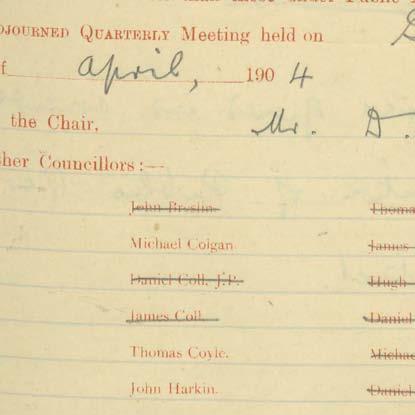 DJOURNED QUARTERLY Meeting held on
April, 1904
the Chair, Mr. D.
her Councillors:—
John Breslin. Thoma
Michael Colgan. James
Daniel Coll, J.P. Hugh
James Coll. Daniel
Thomas Coyle. Michae
John Harkin. Daniel